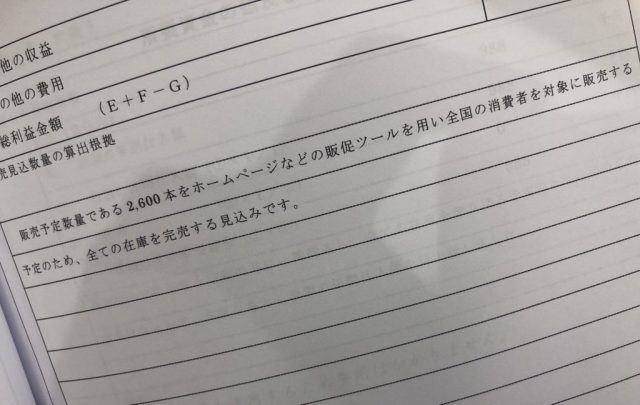 他の収益
の他の費用
総利益金額 (E+F−G)
売見込数量の算出根拠
販売予定数量である2,600本をホームページなどの販促ツールを用い全国の消費者を対象に販売する
予定のため、全ての在庫を完売する見込みです。